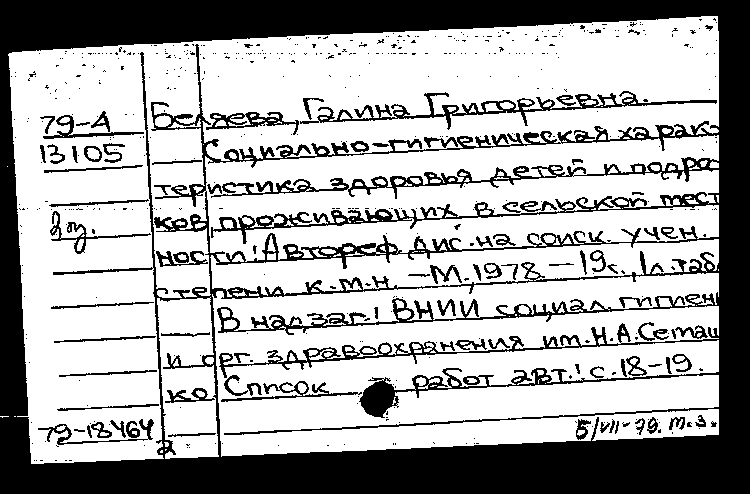 79-А Беляева, Галина Григорьевна.
13105 Социально-гигиеническая харак-
теристика здоровья детей и подрос
ков, проживающих в сельской мест
2 эз. ности: Автореф. дис. на соиск. учен.
степени к.м.н. - М., 1978. - 19с., 1 л. табл
В надзаг.: ВНИИ социал. гигиен
и орг. здравоохранения им. Н.А. Семаш
ко. Список работ авт.: с. 18-19.
79-18464
2
5/VII-79. т.з.